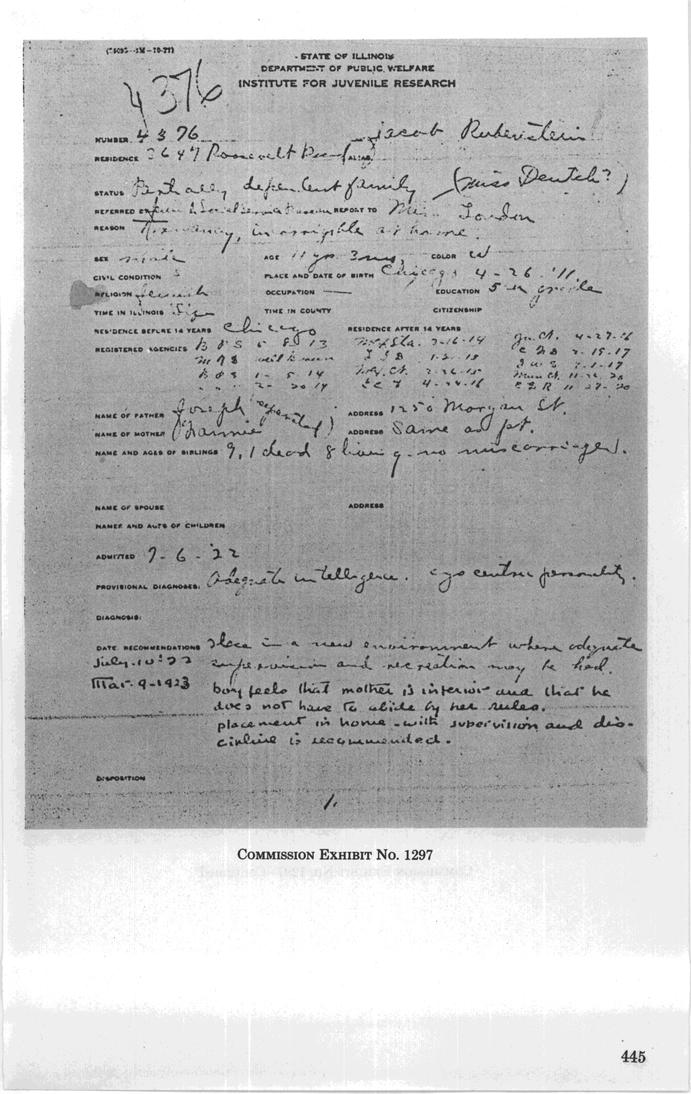 STATE OF ILLINOIS
DEPARTMENT OF PUBLIC WELFARE
INSTITUTE FOR JUVENILE RESEARCH
4376
NUMBER 4376 Jacob Rubenstein
RESIDENCE 3647 Roosevelt Road
STATUS Partially dependent family (Miss Deutch?)
REFERRED REPORT TO Miss London
REASON Truancy, incorrigible at home.
SEX male AGE 11 yrs. 3 mos. COLOR W
CIVIL CONDITION S PLACE AND DATE OF BIRTH Chicago 4-26-'11
RELIGION Jewish OCCUPATION — EDUCATION 5th grade
TIME IN ILLINOIS Life TIME IN COUNTY CITIZENSHIP
RESIDENCE BEFORE 14 YEARS Chicago RESIDENCE AFTER 14 YEARS
REGISTERED AGENCIES
NAME OF FATHER Joseph ADDRESS 1250 Morgan St.
NAME OF MOTHER Fannie (separated) ADDRESS Same as pt.
NAME AND AGES OF SIBLINGS 9, 1 dead 8 living - no miscarriages.
NAME OF SPOUSE ADDRESS
NAMES AND AGES OF CHILDREN
ADMITTED 7-6-'22
PROVISIONAL DIAGNOSES: Adequate intelligence. egocentric personality.
DIAGNOSIS:
DATE RECOMMENDATIONS Place in a new environment where adequate
July-10-'22 supervision and recreation may be had.
Mar-9-1923 boy feels that mother is inferior and that he
does not have to abide by her rules.
placement in home - with supervision and dis-
cipline is recommended.
DISPOSITION
1.
COMMISSION EXHIBIT NO. 1297
445